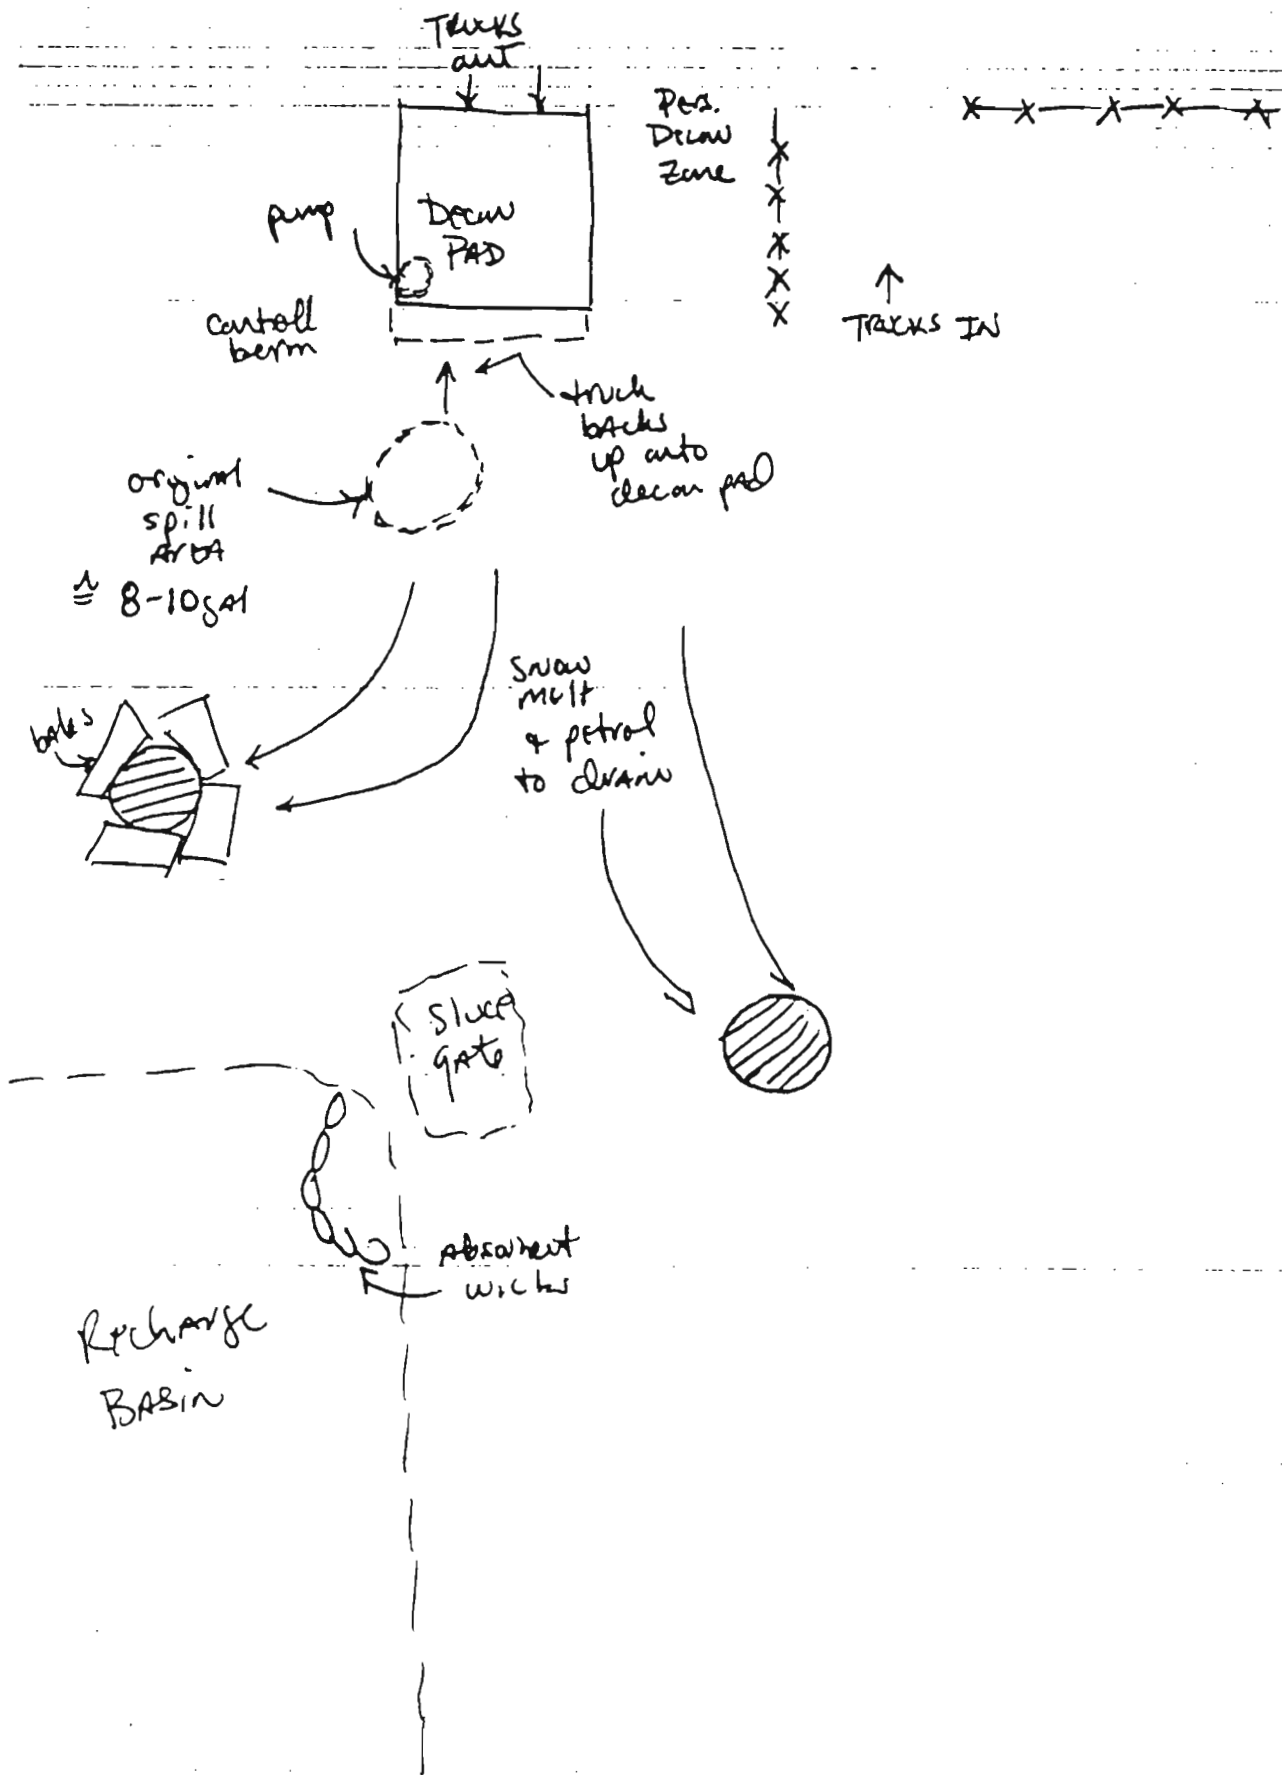 TRUCKS
out
Pers.
Decon
Zone
pump
Decon
PAD
TRUCKS IN
Controll
berm
truck
bAcks
up onto
decon pAd
original
spill
AreA
≙ 8-10 gAl
bAles
Snow
melt
& petrol
to drAin
Sluce
gAte
Absorbent
wicks
RechArge
BASiN